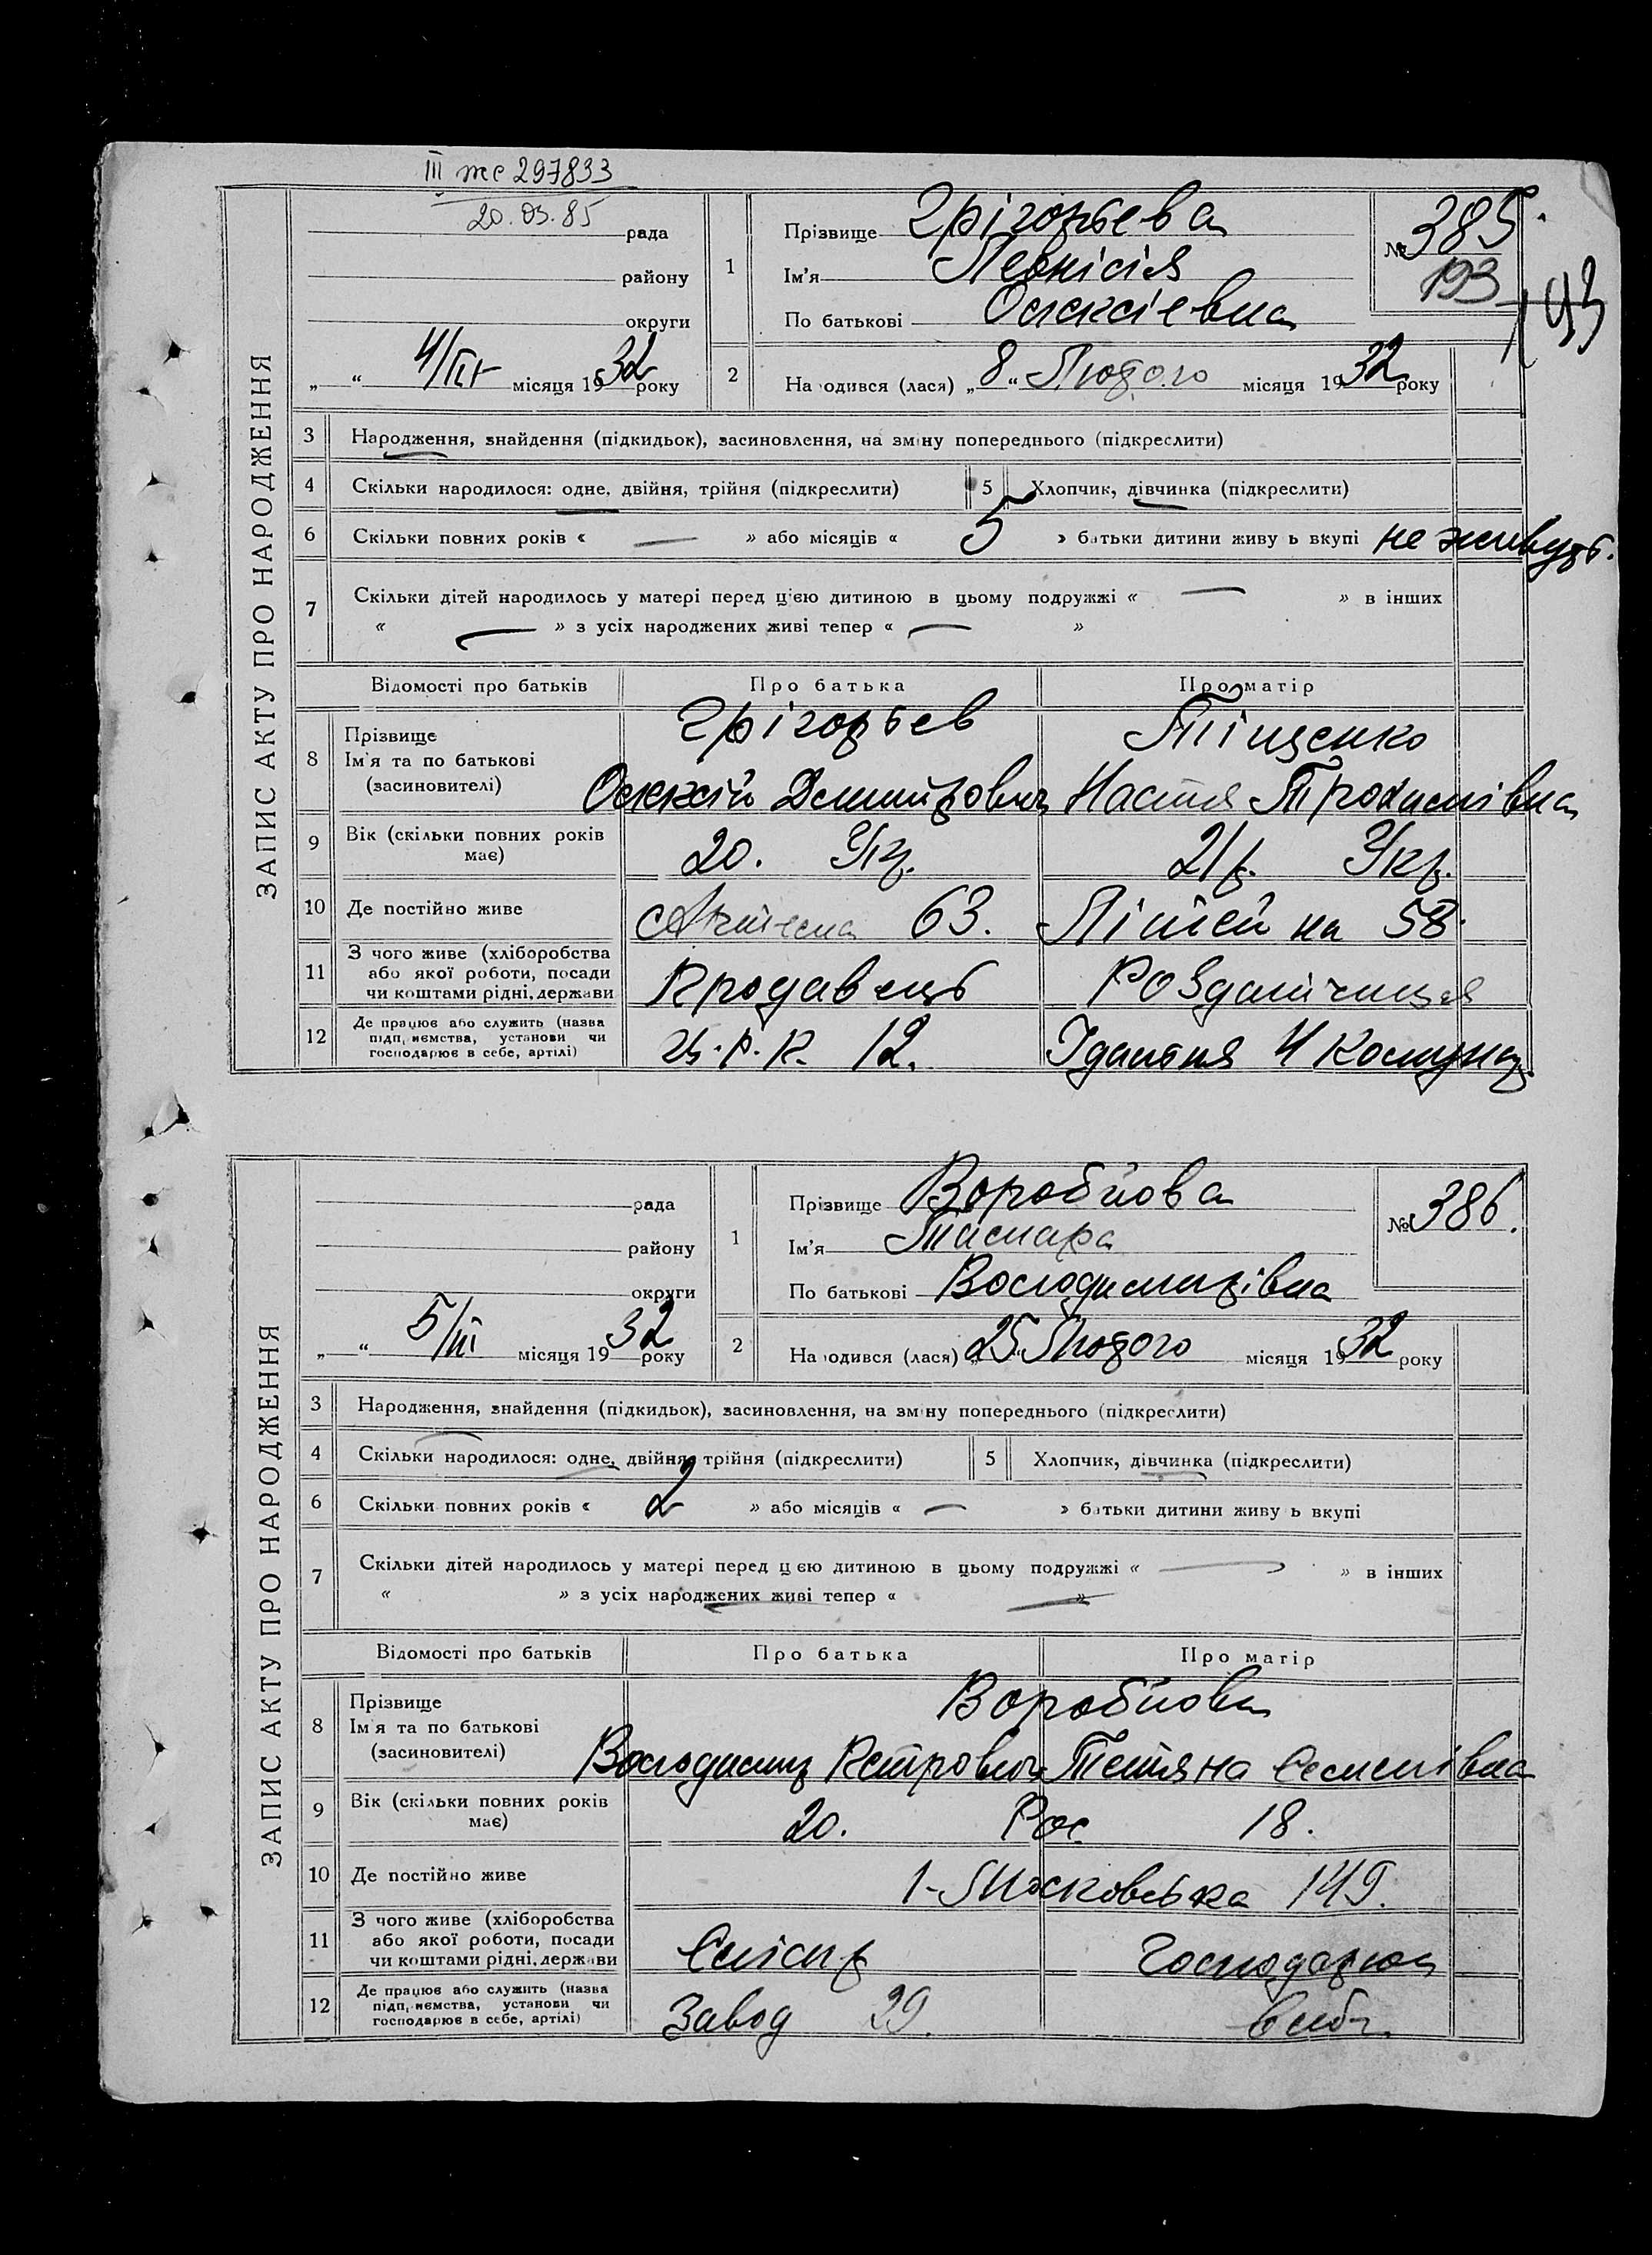 III же 297833
20.03.85
ЗАПИС АКТУ ПРО НАРОДЖЕННЯ
рада
району
округи
„ “ 4/III місяця 1932 року
1
Прізвище Грігорьєва
Ім'я Леонісія
По батькові Олексіевна
№ 385.
193
193
2
Народився (лася) „8“ Лютого місяця 1932 року
3 Народження, знайдення (підкидьок), засиновлення, на зміну попереднього (підкреслити)
4 Скільки народилося: одне, двійня, трійня (підкреслити) 5 Хлопчик, дівчинка (підкреслити)
6 Скільки повних років « — » або місяців « 5 » батьки дитини живуть вкупі не живуть.
7 Скільки дітей народилось у матері перед цією дитиною в цьому подружжі « — » в інших
« — » з усіх народжених живі тепер « — »
Відомості про батьків Про батька Про матір
8 Прізвище Ім'я та по батькові (засновителі)
Грігорьев Тіщенко
Олексій Дмитрович Настя Трохимівна
9 Вік (скільки повних років має) 20. Укр. 21р. Укр.
10 Де постійно живе 63. Літейна 58.
11 З чого живе (хліборобства або якої роботи, посади чи коштами рідні, держави Продавець Роздатчиця
12 Де працює або служить (назва підприємства, установи чи господарює в себе, артілі) Ц.Р.К. 12. Їдальня 4 Комунар.
ЗАПИС АКТУ ПРО НАРОДЖЕННЯ
рада
району
округи
„ “ 5/III місяця 1932 року
1
Прізвище Воробйова
Ім'я Тамара
По батькові Володимирівна
№ 386.
2
Народився (лася) „25“ Лютого місяця 1932 року
3 Народження, знайдення (підкидьок), засиновлення, на зміну попереднього (підкреслити)
4 Скільки народилося: одне, двійня, трійня (підкреслити) 5 Хлопчик, дівчинка (підкреслити)
6 Скільки повних років « 2 » або місяців « — » батьки дитини живуть вкупі
7 Скільки дітей народилось у матері перед цією дитиною в цьому подружжі « — » в інших
« » з усіх народжених живі тепер « — »
Відомості про батьків Про батька Про матір
8 Прізвище Ім'я та по батькові (засиновителі)
Воробйови
Володимир Петрович Тетяна Семенівна
9 Вік (скільки повних років має) 20. Рос 18.
10 Де постійно живе 1-Московська 149.
11 З чого живе (хліборобства або якої роботи, посади чи коштами рідні, держави Слюсар Господарює
12 Де працює або служить (назва підприємства, установи чи господарює в себе, артілі) Завод 29.